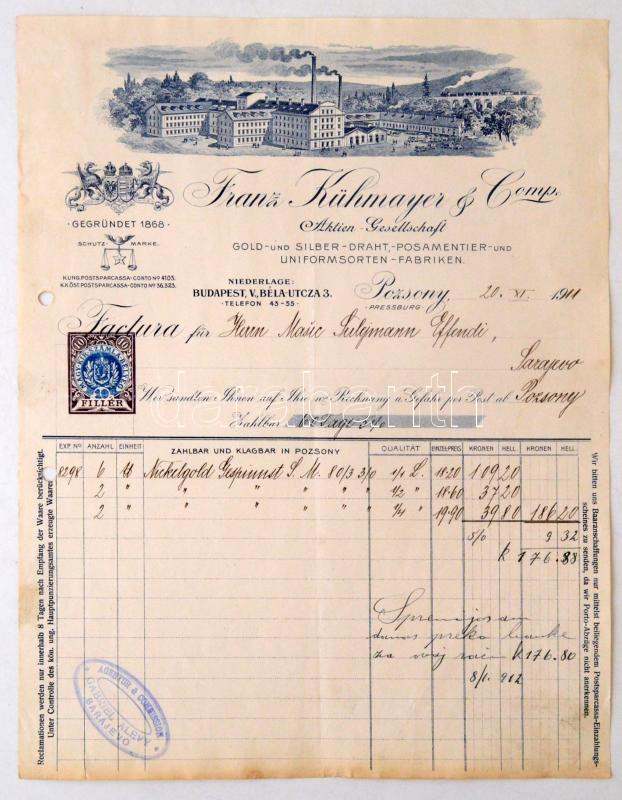 Franz Kühmayer & Comp.
Aktien-Gesellschaft
GOLD-UND SILBER-DRAHT,-POSAMENTIER-UND
UNIFORMSORTEN-FABRIKEN.
GEGRÜNDET 1868
SCHUTZ MARKE.
K.UNG.POSTSPARCASSA-CONTO Nº 4103.
K.K.ÖST.POSTSPARCASSA-CONTO Nº 36.323.
NIEDERLAGE:
BUDAPEST, V., BÉLA-UTCZA 3.
TELEFON 43-55
Pozsony, 20. XI. 1911
PRESSBURG
Factura für Herrn Mašic Sulejmann Effendi,
Sarajevo
10 10
MAGYAR SZÁMLABÉLYEG
10
FILLÉR
Wir sandten Ihnen auf Ihre w. Rechnung u. Gefahr per Post ab Pozsony
Zahlbar
darabanth
EXP. Nº ANZAHL EINHEIT ZAHLBAR UND KLAGBAR IN POZSONY QUALITÄT EINZELPREIS KRONEN HELL. KRONEN HELL.
8298 6 Nickelgold Gespinnst S. M. 80/3 3/0 1/1 L. 18·20 109 20
2 " " " " " 1/2 " 18·60 37 20
2 " " " " " " 19·90 39 80 186 20
5/0 9 32
K 176.88
Spremijos am
danas preko banke
za ovaj račun K 176.80
8/1. 912
AGENTUR & COMMISSION
GABRIEL ALEVY
SARAJEVO
Reclamationen werden nur innerhalb 8 Tagen nach Empfang der Waare berücksichtigt.
Unter Controlle des kön. ung. Hauptpunzierungsamtes erzeugte Waare!
Wir bitten uns Baaranschaffungen nur mittelst beiliegendem Postsparcassa-Einzahlungs-
scheines zu senden, da wir Porto-Abzüge nicht anerkennen.